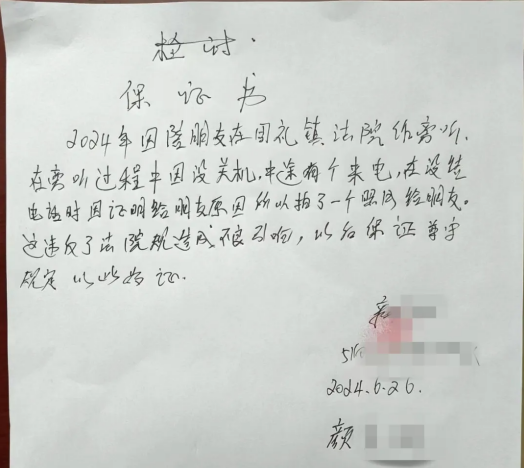 检讨.
保证书
2024年因陪朋友在回礼镇法院给旁听.
在旁听过程中因没关机,中途有个来电,在没结
电话时因证明给朋友原因所以拍了一个照片给朋友。
这违反了法院规造成不良引响,以后保证尊守
规定 以此为证.
510
2024.6.26.
颜